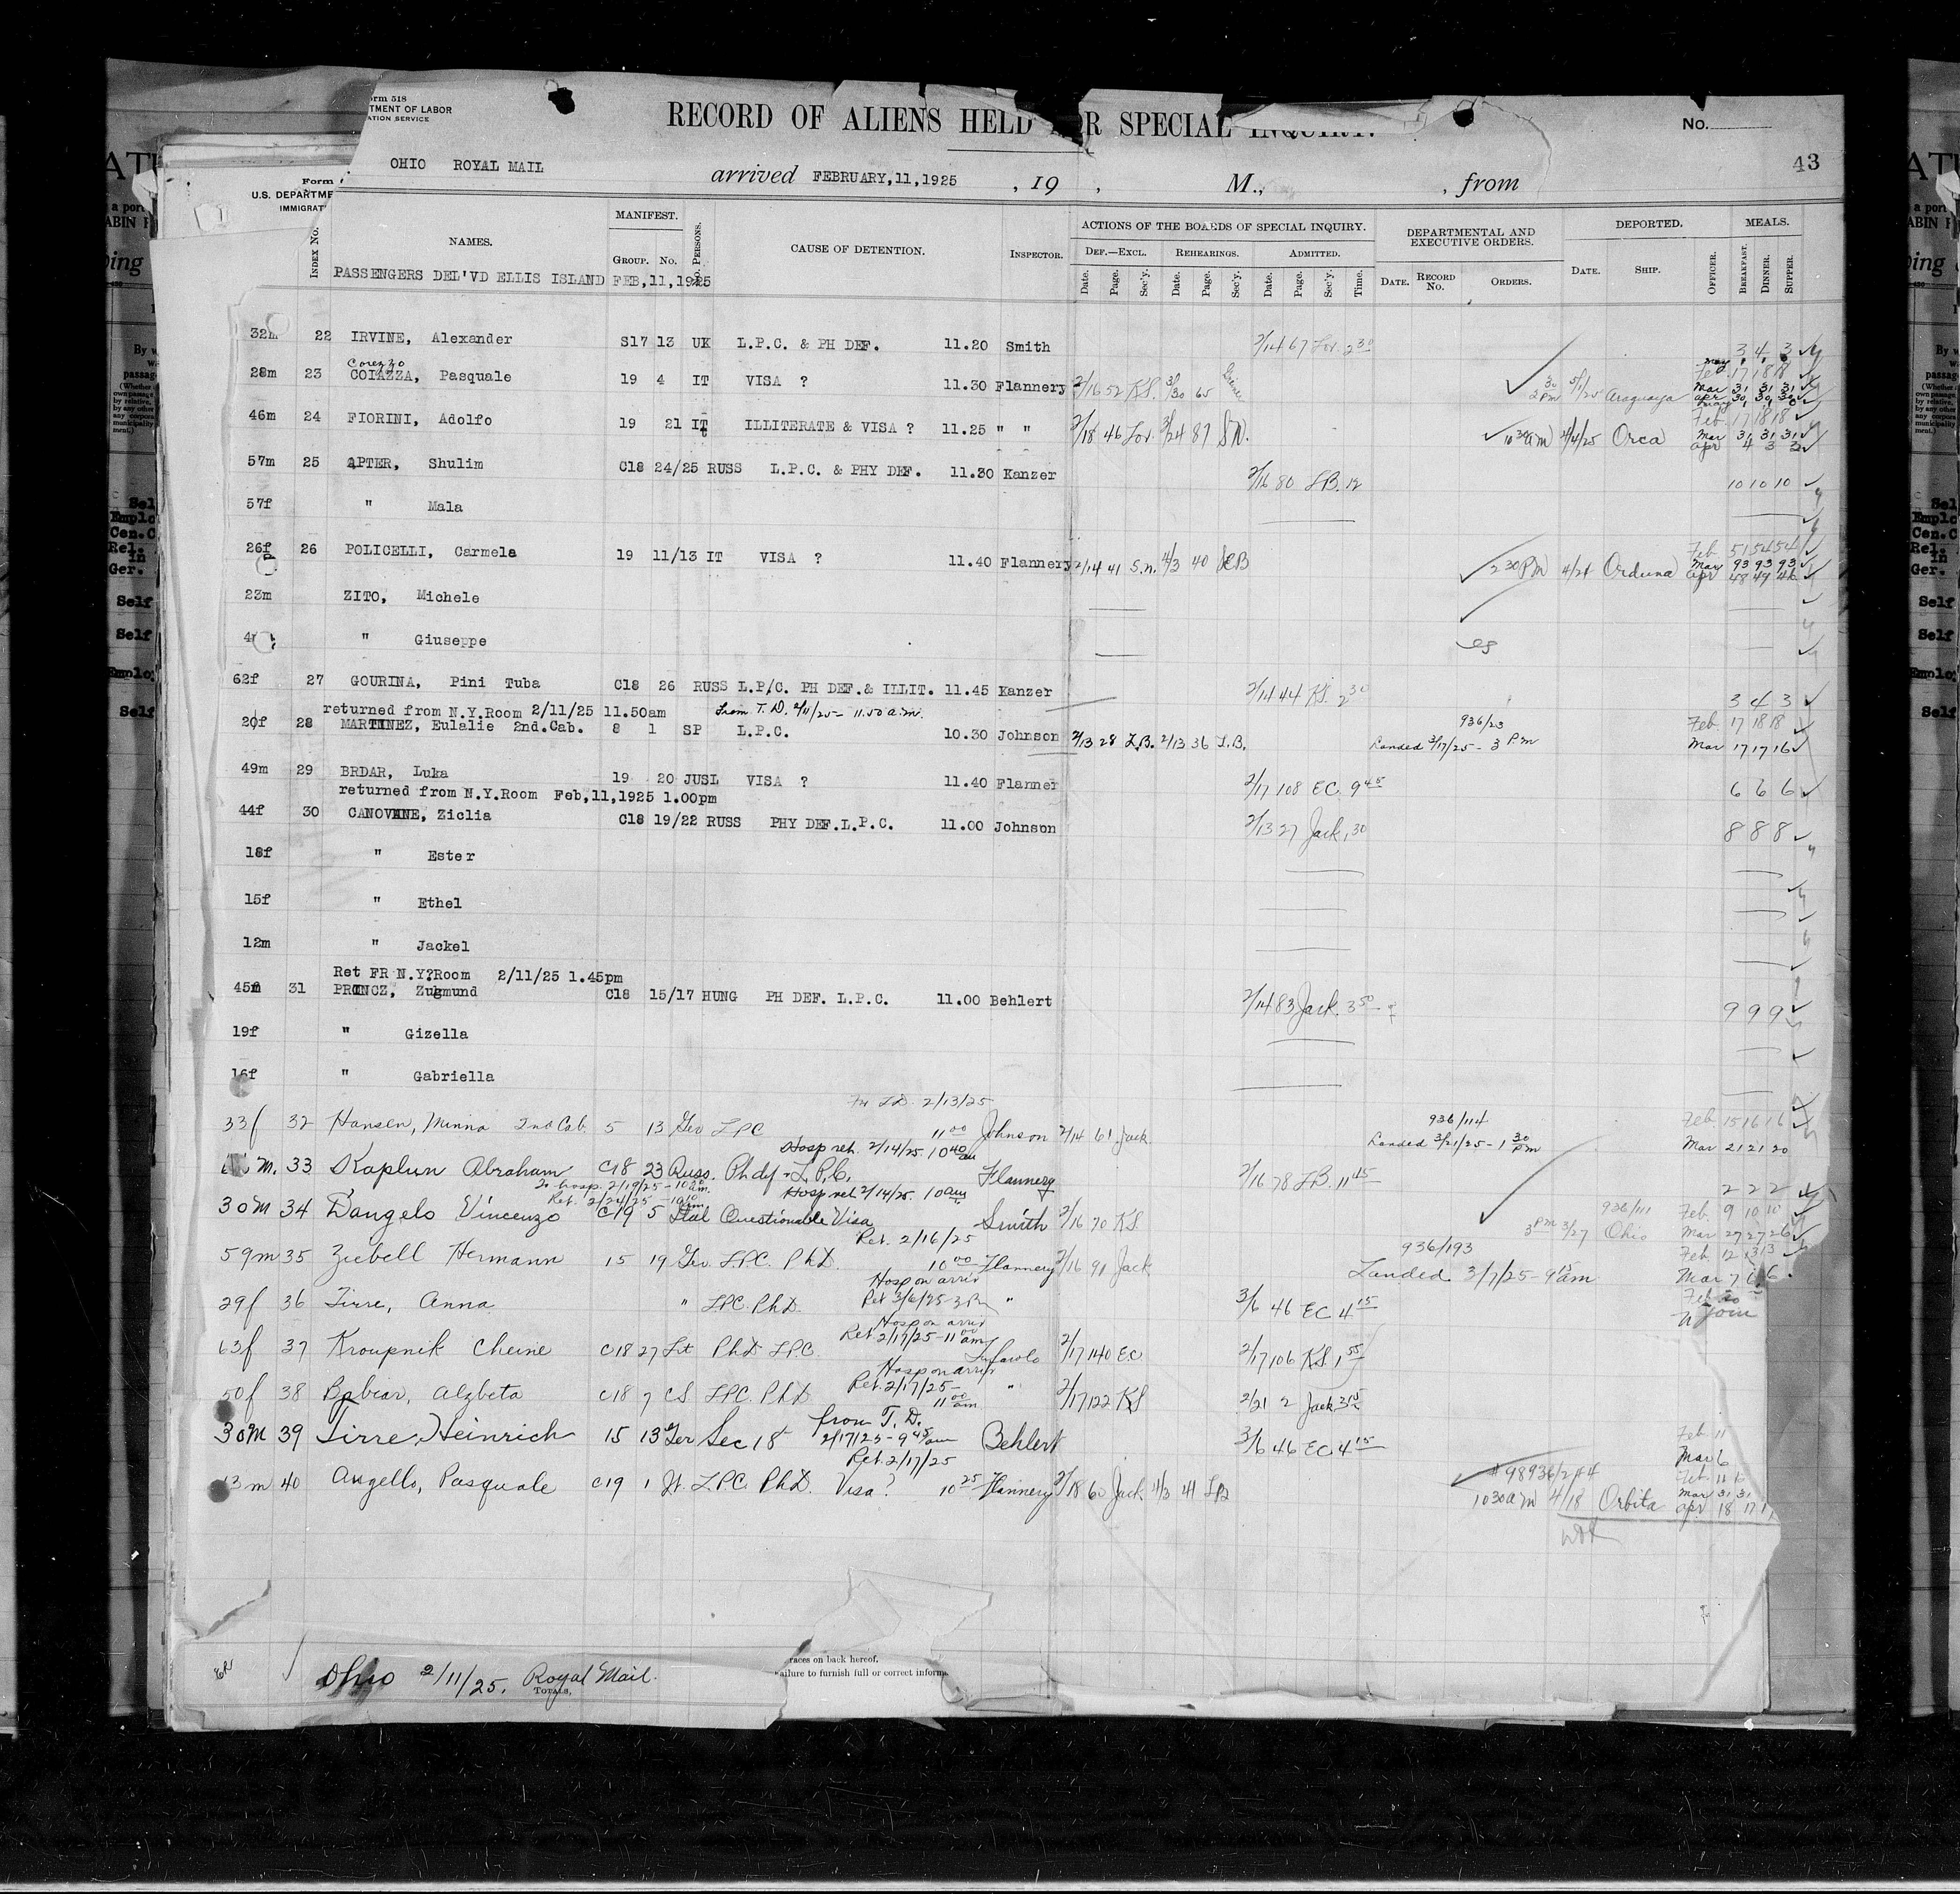 orm 518
TMENT OF LABOR
ATION SERVICE
RECORD OF ALIENS HELD FOR SPECIAL INQUIRY.
No.
43
OHIO ROYAL MAIL arrived FEBRUARY,11,1925 , 19 , M., , from
Form
U.S. DEPARTME
IMMIGRAT
INDEX No.
NAMES.
MANIFEST.
GROUP. No.
No. PERSONS.
CAUSE OF DETENTION.
INSPECTOR.
ACTIONS OF THE BOARDS OF SPECIAL INQUIRY.
DEF.—EXCL. REHEARINGS. ADMITTED.
Date. Page. Sec'y. Date. Page. Sec'y. Date. Page. Sec'y. Time.
DEPARTMENTAL AND EXECUTIVE ORDERS.
DATE. RECORD No. ORDERS.
DEPORTED.
DATE. SHIP.
OFFICER.
MEALS.
BREAKFAST. DINNER. SUPPER.
PASSENGERS DEL'VD ELLIS ISLAND FEB,11,1925
32m 22 IRVINE, Alexander S17 13 UK L.P.C. & PH DEF. 11.20 Smith 2/14 67 Lov. 2 30 3 4 3
Corezzo
28m 23 COIAZZA, Pasquale 19 4 IT VISA ? 11.30 Flannery 2/16 52 K.S. 3/30 65 2 30 PM 5/1/25 Araguaya Feb 17 18 18
Mar 31 31 31
apr 30, 30, 30
46m 24 FIORINI, Adolfo 19 21 IT ILLITERATE & VISA ? 11.25 " " 2/18 46 Lov. 3/24 87 S.N. 10 30 am 4/4/25 Orca Feb. 17 18 18
Mar 31 31 31
apr 4 3 3
57m 25 APTER, Shulim C18 24/25 RUSS L.P.C. & PHY DEF. 11.30 Kanzer 2/16 80 L.B. 12 10 10 10
57f " Mala
26f 26 POLICELLI, Carmela 19 11/13 IT VISA ? 11.40 Flannery 2/14 41 S.N. 4/3 40 2 30 PM 4/21 Orduna Feb 51 54 54
Mar 93 93 93
apr 48 49 46
23m ZITO, Michele
" Giuseppe
62f 27 GOURINA, Pini Tuba C18 26 RUSS L.P/C. PH DEF.& ILLIT. 11.45 Kanzer 2/14 44 K.S. 2 30 3 4 3
returned from N.Y.Room 2/11/25 11.50am from T. D. 2/11/25 - 11.50 a.m. 936/23 Feb. 17 18 18
20f 28 MARTINEZ, Eulalie 2nd.Cab. 8 1 SP L.P.C. 10.30 Johnson 2/13 28 L.B. 2/13 36 L.B. Landed 3/17/25 - 3 P.m Mar 17 17 16
49m 29 BRDAR, Luka 19 20 JUSL VISA ? 11.40 Flanner 2/17 108 EC 9 45 6 6 6
returned from N.Y.Room Feb,11,1925 1.00pm
44f 30 CANOVANE, Ziclia C18 19/22 RUSS PHY DEF.L.P.C. 11.00 Johnson 2/13 27 Jack 1 30 8 8 8
18f " Ester
15f " Ethel
12m " Jackel
Ret FR N.Y?Room 2/11/25 1.45pm
45m 31 PRINCZ, Zugmund C18 15/17 HUNG PH DEF. L.P.C. 11.00 Behlert 2/14 83 Jack. 3 50 9 9 9
19f " Gizella
16f " Gabriella
2/13/25
33f 32 Hansen, Minna 2nd Cab. 5 13 Ger LPC 11 00 Johnson 2/14 61 Jack 936/114 Feb 15 16 16
Landed 3/21/25 - 1 30 Pm Mar 21 21 20
Hosp ret. 2/14/25. 10 40 am
M. 33 Kaplun Abraham C18 23 Russ. Ph def - L.P.C. Flannery 2/16 78 L.B. 11 15 2 2 2
To hosp. 2/19/25 - 10 am. Hosp ret 2/14/25. 10 am
Ret. 2/24/25
30M 34 D'angelo Vincenzo C19 5 Ital Questionable Visa Smith 2/16 70 KS 936/111 Feb. 9 10 10
3 PM 3/27 Ohio Mar 27 27 26
Ret. 2/16/25
59m 35 Ziebell Hermann 15 19 Ger. L.P.C. PhD. 10 00 Flannery 2/16 91 Jack 936/193 Feb. 12 13 13
Landed 3/7/25 - 9 15 am Mar 7 6 6
Hosp on arriv
29f 36 Tirre, Anna " LPC. PhD. Ret 3/6/25 - 3 Pm " 3/6 46 EC 4 15
Hosp on arriv
Ret 2/17/25 - 11 00 am
63f 37 Kroupnik Cheine C18 27 Lit PhD LPC. 2/17 140 EC 2/17 106 KS 1 55
Hosp on arriv
Ret. 2/17/25 -
50f 38 Babiar, Alzbeta C18 7 CS LPC. PhD 11 00 am " 2/17 122 KS 2/21 2 Jack 3 15
from T. D.
30M 39 Tirre, Heinrich 15 13 Ger Sec 18 2/17/25 - 9 45 am Behlert 3/6 46 EC 4 15 Feb 11
Mar 6
Ret 2/17/25
13m 40 Angello, Pasquale C19 1 It. L.P.C. PhD. Visa? 10 25 Flannery 2/18 60 Jack 4/3 41 10 30 am 4/18 Orbita Mar 31 31
apr 18 17 17
races on back hereof.
ailure to furnish full or correct inform
Ohio 2/11/25. Royal Mail.
TOTALS,